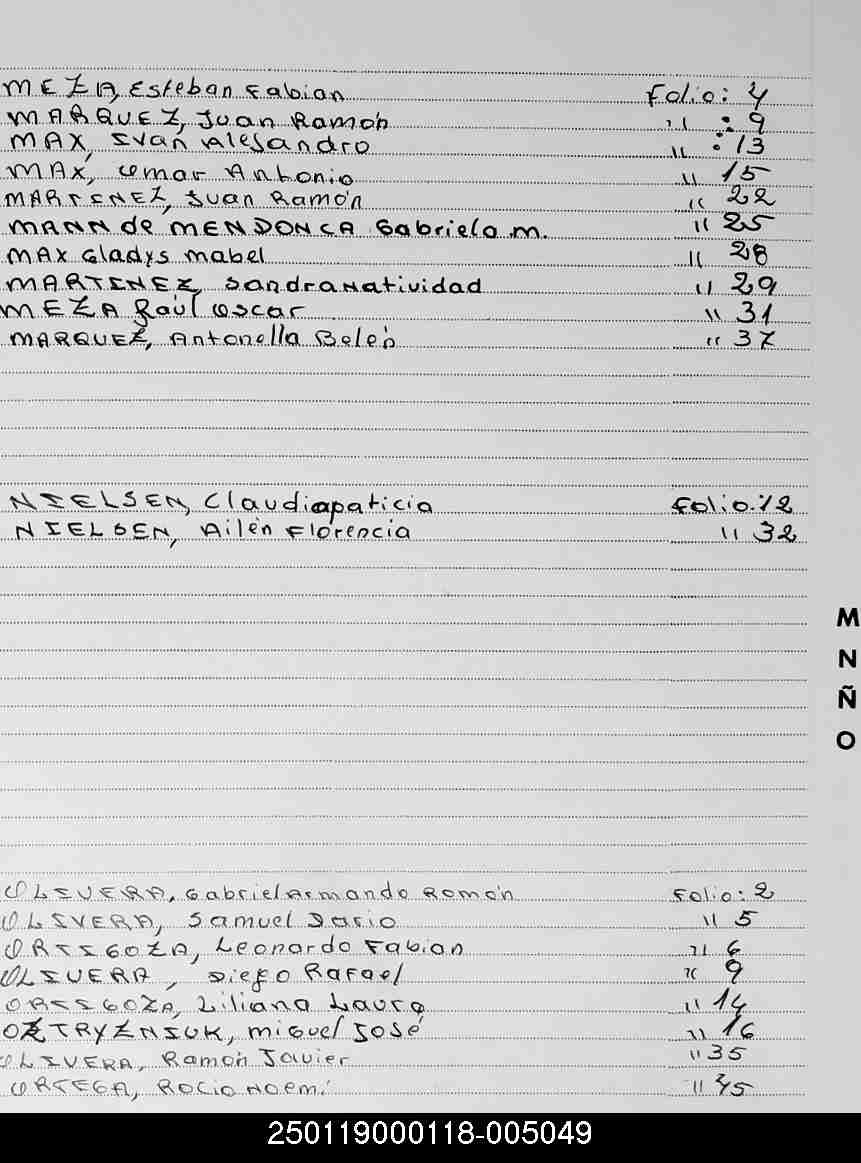 MEZA, Esteban Fabian Folio: 4
MARQUEZ, Juan Ramón " : 9
MAX, Ivan Alejandro " : 13
MAX, Omar Antonio " 15
MARTINEZ, Juan Ramón " 22
MANN de MENDONCA Gabriela M. " 25
MAX Gladys mabel " 28
MARTINEZ, Sandra Natividad " 29
MEZA Raúl Oscar " 31
MARQUEZ, Antonella Belén " 37
NIELSEN, Claudia paticia Folio: 12
NIELSEN, Ailén Florencia " 32
M
N
Ñ
O
OLIVERA, Gabriel Armando Román Folio: 2
OLIVERA, Samuel Dario " 5
ORTIGOZA, Leonardo Fabian " 6
OLIVERA, Diego Rafael " 9
ORTIGOZA, Liliana Laura " 14
OZTRYZNIUK, miguel José " 16
OLIVERA, Ramón Javier " 35
ORTEGA, Rocio Noemí " 45
250119000118-005049